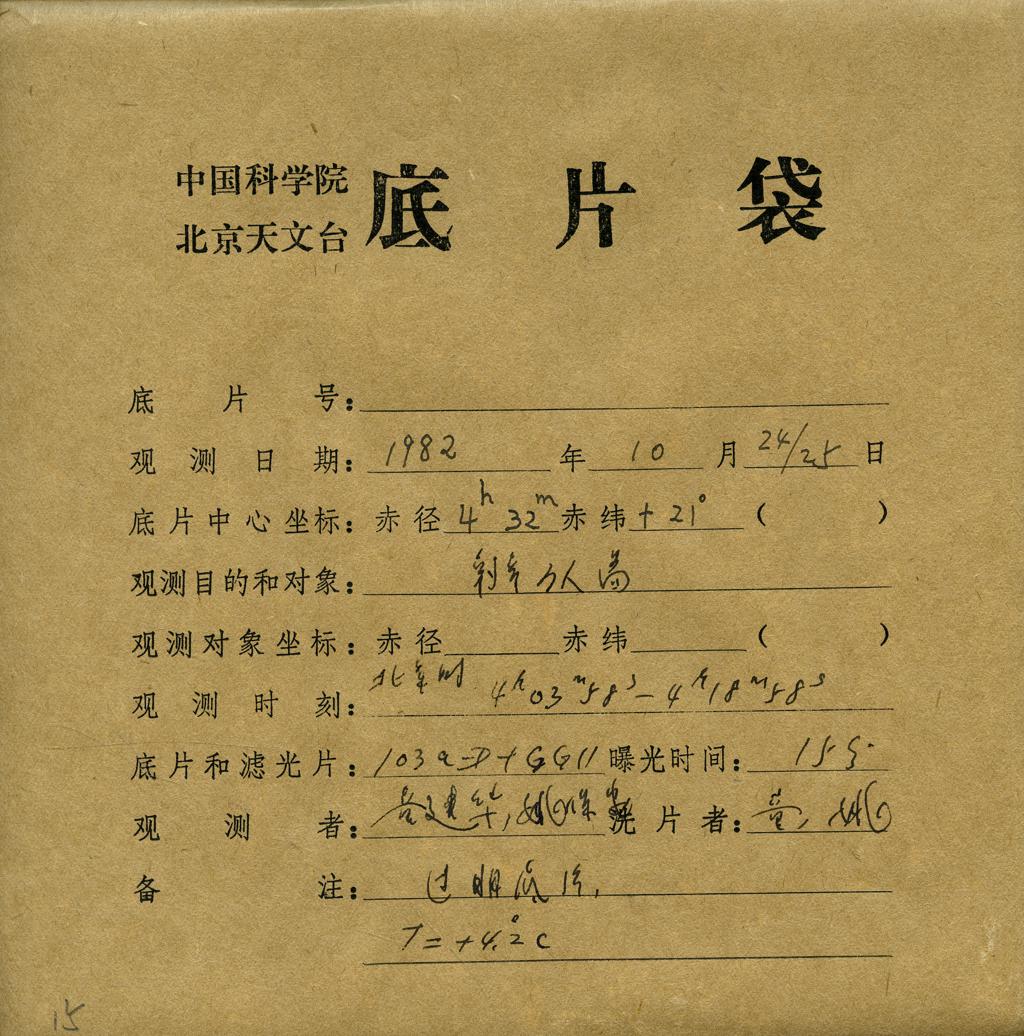 中国科学院
北京天文台 底片袋
底片号:
观测日期: 1982 年 10 月 24/25 日
底片中心坐标: 赤径 4h 32m 赤纬 +21° ( )
观测目的和对象:
观测对象坐标: 赤径 赤纬 ( )
观测时刻: 北京时 4h03m58s - 4h18m58s
底片和滤光片: 103a-D+GG11 曝光时间: 15
观测者: 洗片者:
备注: 过期底片,
T=+4.°2C
15